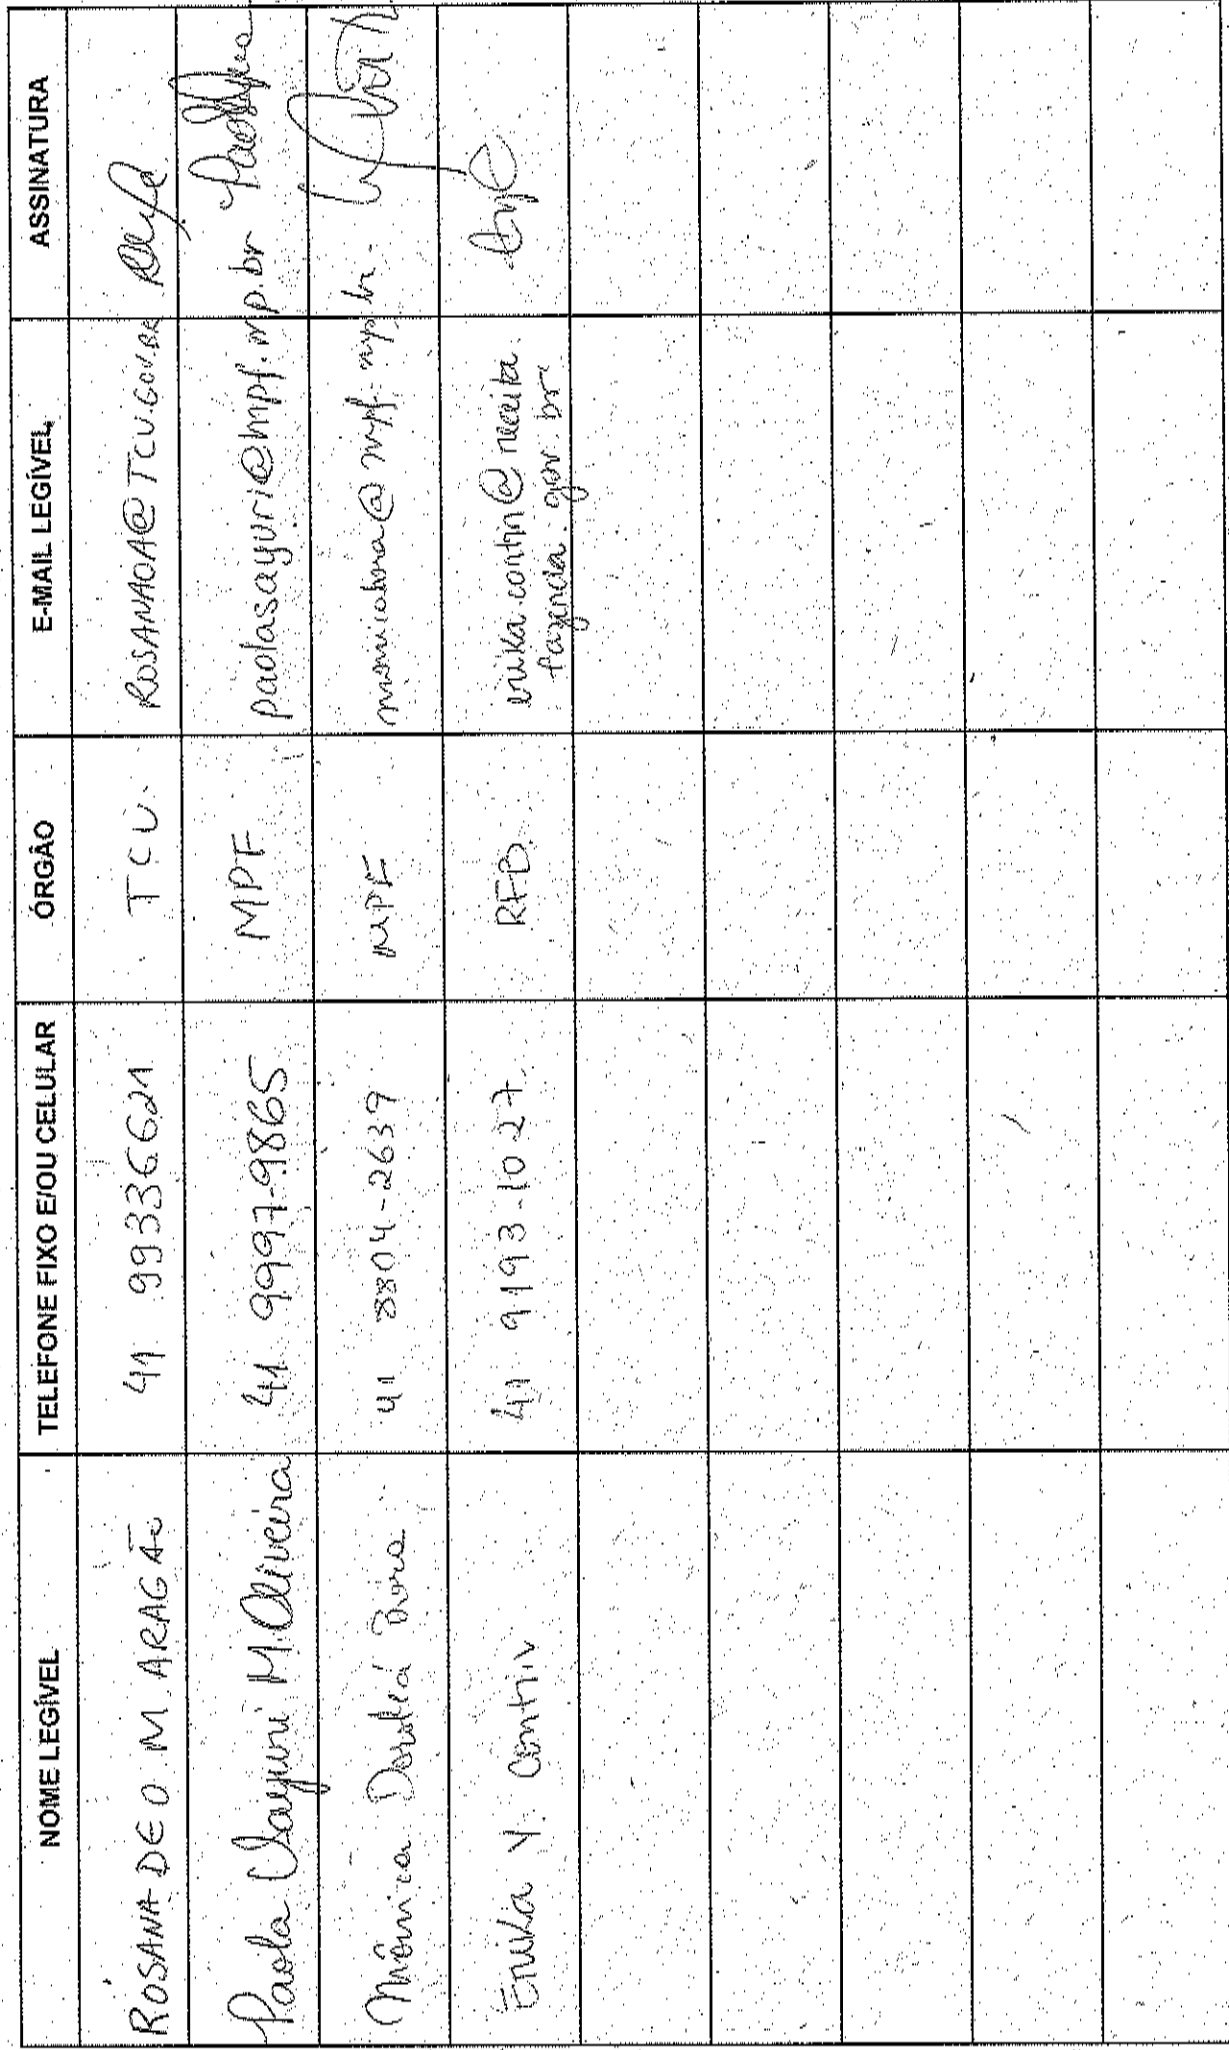 NOME LEGÍVEL TELEFONE FIXO E/OU CELULAR ÓRGÃO E-MAIL LEGÍVEL ASSINATURA
ROSANA DE O. M. ARAGÃO 41 99336621 TCU ROSANAOA@TCU.GOV.BR
Paola Sayuri M. Oliveira 41 9997-9865 MPF paolasayuri@mpf.mp.br
Mônica Dorotéa Bora 41 8804-2639 MPF monicabora@mpf.mp.br
Erika Y. Contin 41 9193-1027 RFB erika.contin@receita.
fazenda.gov.br